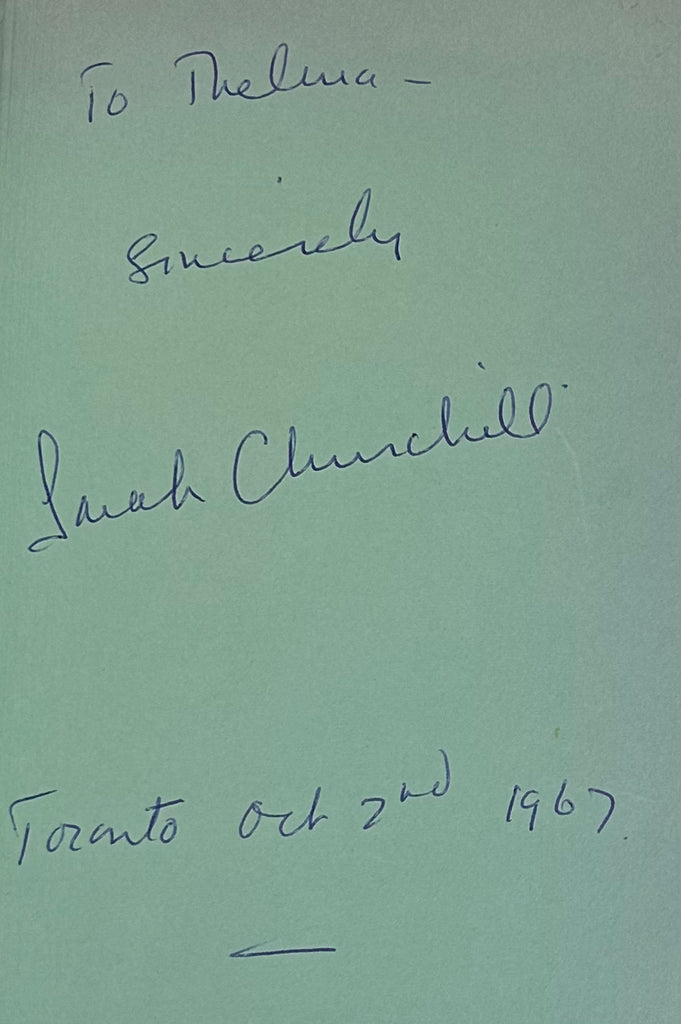 To Thelma –
Sincerely
Sarah Churchill
Toronto Oct 2nd 1967.